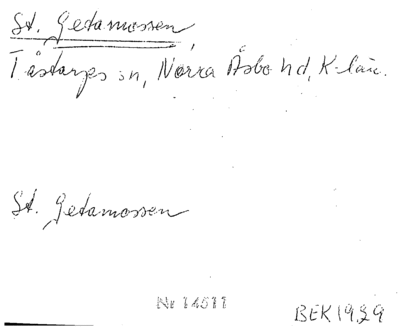 St. Getamossen,
Tåstarps sn, Norra Åsbo hd, K-län.
St. Getamossen
Nr 14511
BEK 1929